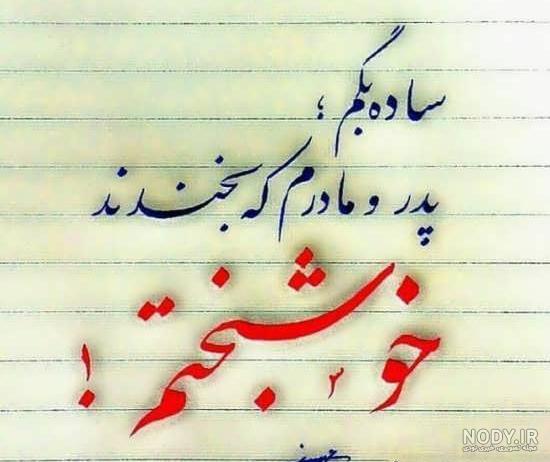 ساده بگم ؛
پدر و مادرم که بخندند
خوشبختم !
NODY.IR